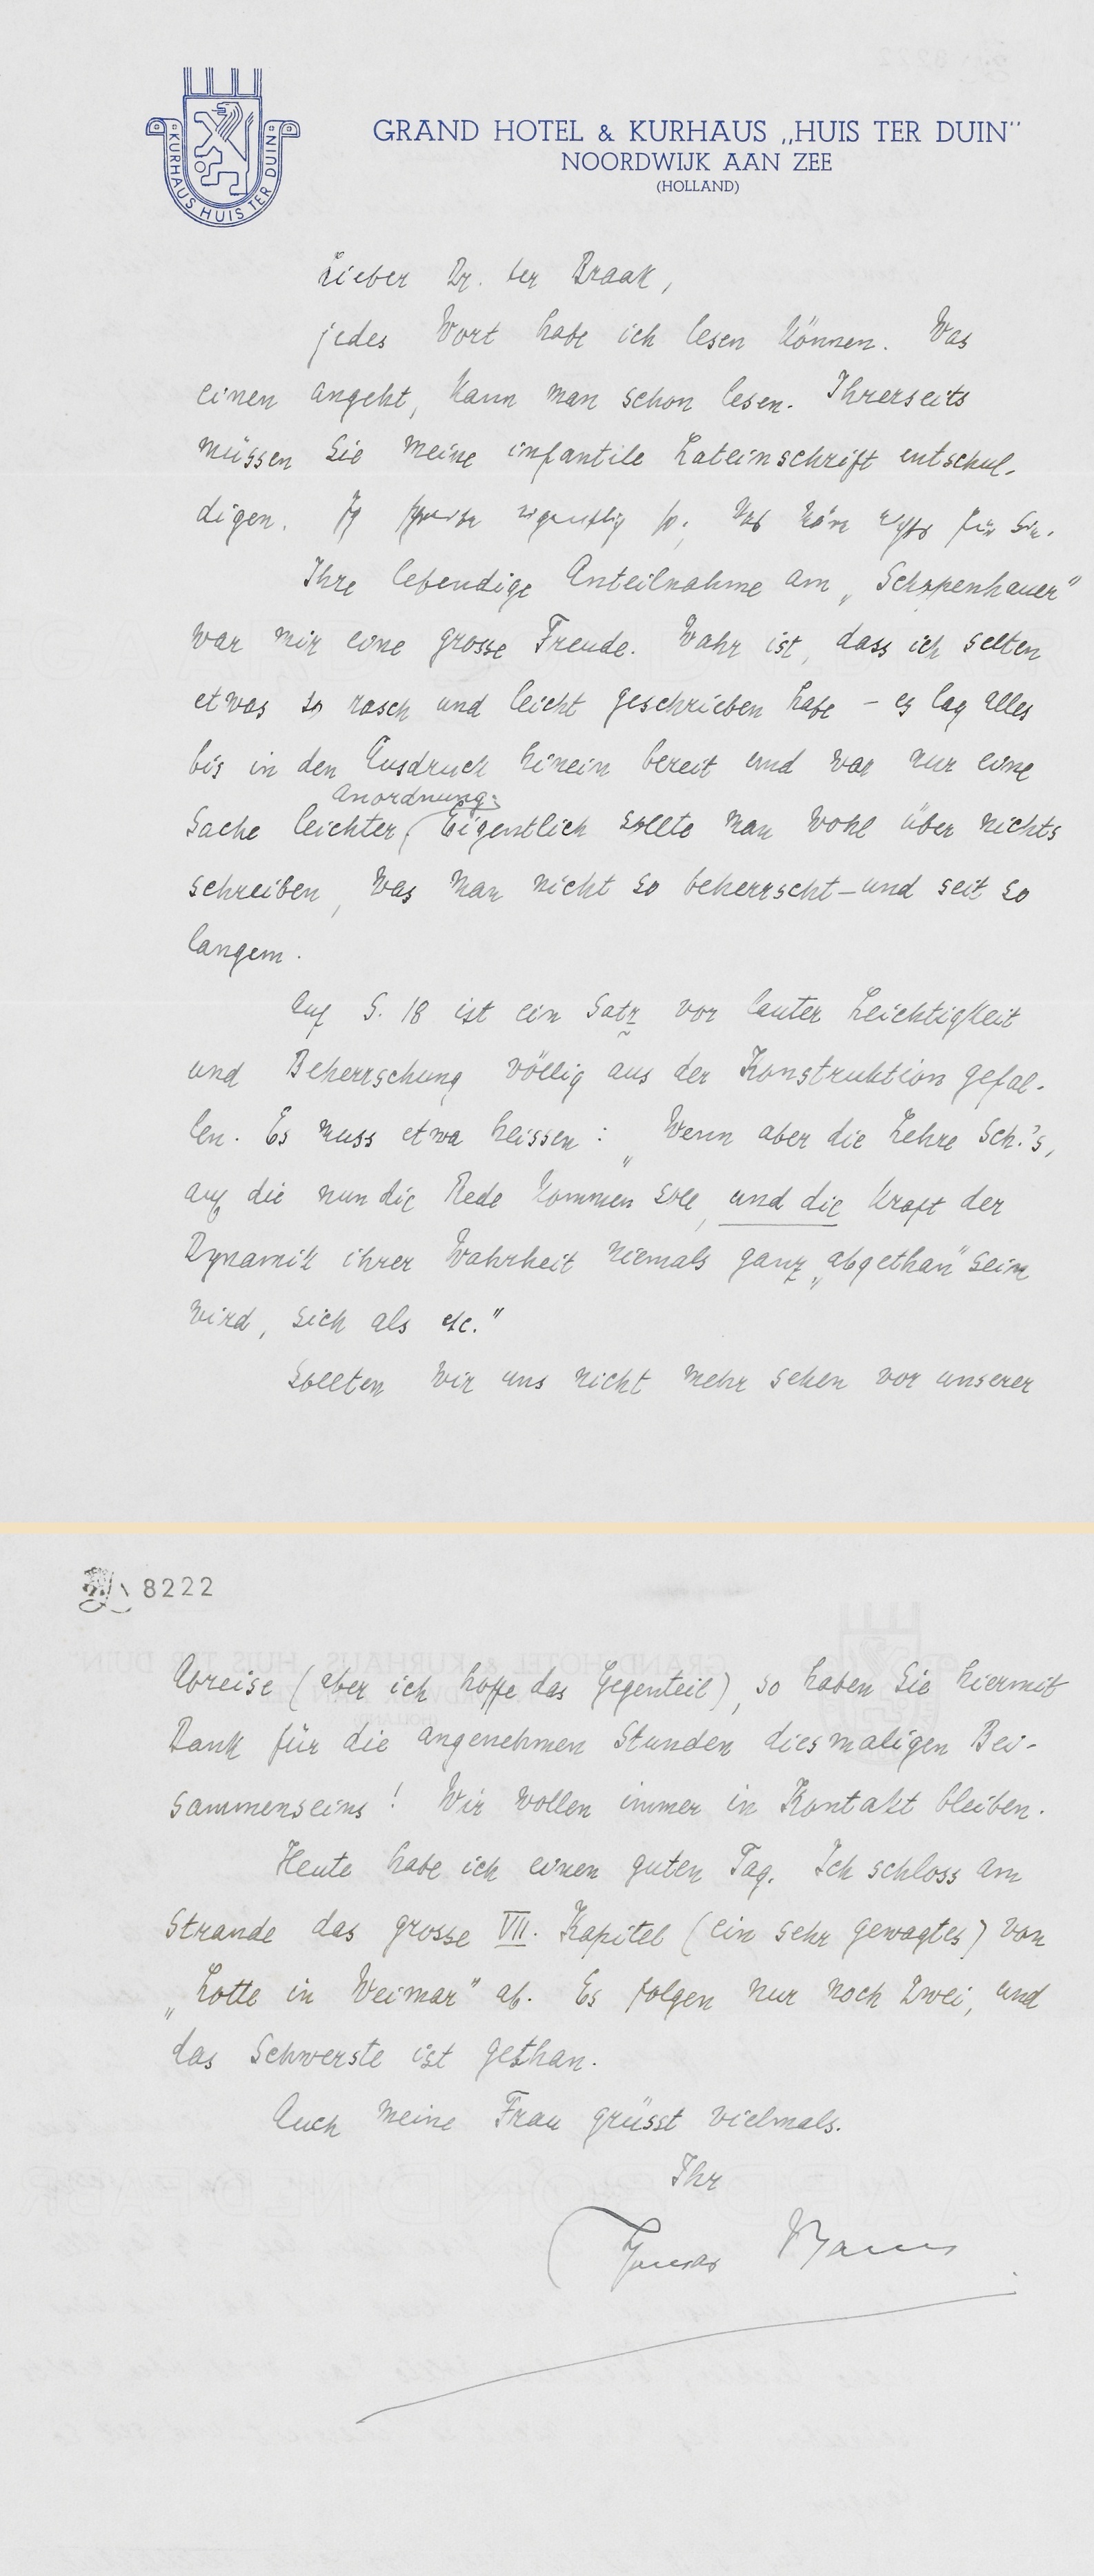 KURHAUS HUIS TER DUIN
GRAND HOTEL & KURHAUS „HUIS TER DUIN"
NOORDWIJK AAN ZEE
(HOLLAND)
Lieber Dr. ter Braak,
jedes Wort habe ich lesen können. Was
einen angeht, kann man schon lesen. Ihrerseits
müssen Sie meine infantile Lateinschrift entschul-
digen. Ich schreibe eigentlich so; das wäre nichts für Sie.
Ihre lebendige Anteilnahme am „Schopenhauer"
war mir eine grosse Freude. Wahr ist, dass ich selten
etwas so rasch und leicht geschrieben habe – es lag alles
bis in den Ausdruck hinein bereit und war nur eine
Anordnung.
Sache leichter Eigentlich sollte man wohl über nichts
schreiben, was man nicht so beherrscht – und seit so
langem.
Auf S. 18 ist ein Satz vor lauter Leichtigkeit
und Beherrschung völlig aus der Konstruktion gefal-
len. Es muss etwa heissen: „Wenn aber die Lehre Sch.'s,
auf die nun die Rede kommen soll, und die kraft der
Dynamik ihrer Wahrheit niemals ganz „abgethan" sein
wird, sich als etc."
Sollten wir uns nicht mehr sehen vor unserer
8222
Abreise (aber ich hoffe das Gegenteil), so haben Sie hiermit
Dank für die angenehmen Stunden diesmaligen Bei-
sammenseins! Wir wollen immer in Kontakt bleiben.
Heute habe ich einen guten Tag. Ich schloss am
Strande das grosse VII. Kapitel (ein sehr gewagtes) von
„Lotte in Weimar" ab. Es folgen nur noch zwei, und
das Schwerste ist gethan.
Auch meine Frau grüsst vielmals.
Ihr
Thomas Mann